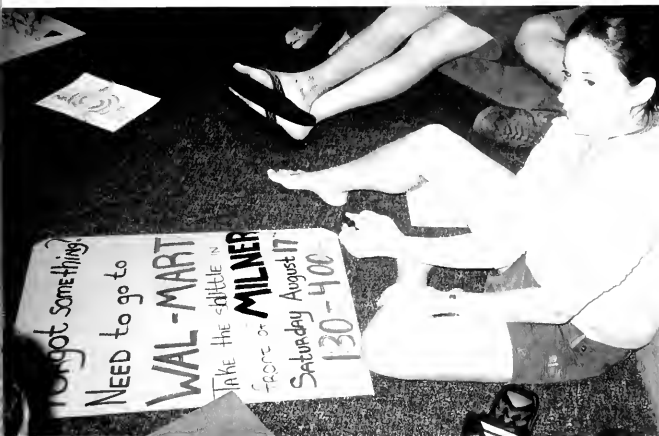 Forgot something?
NEED to go to
WAL-MART
TAKE the shuttle in
front of MILNER
Saturday August 17th
1:30 - 4:00